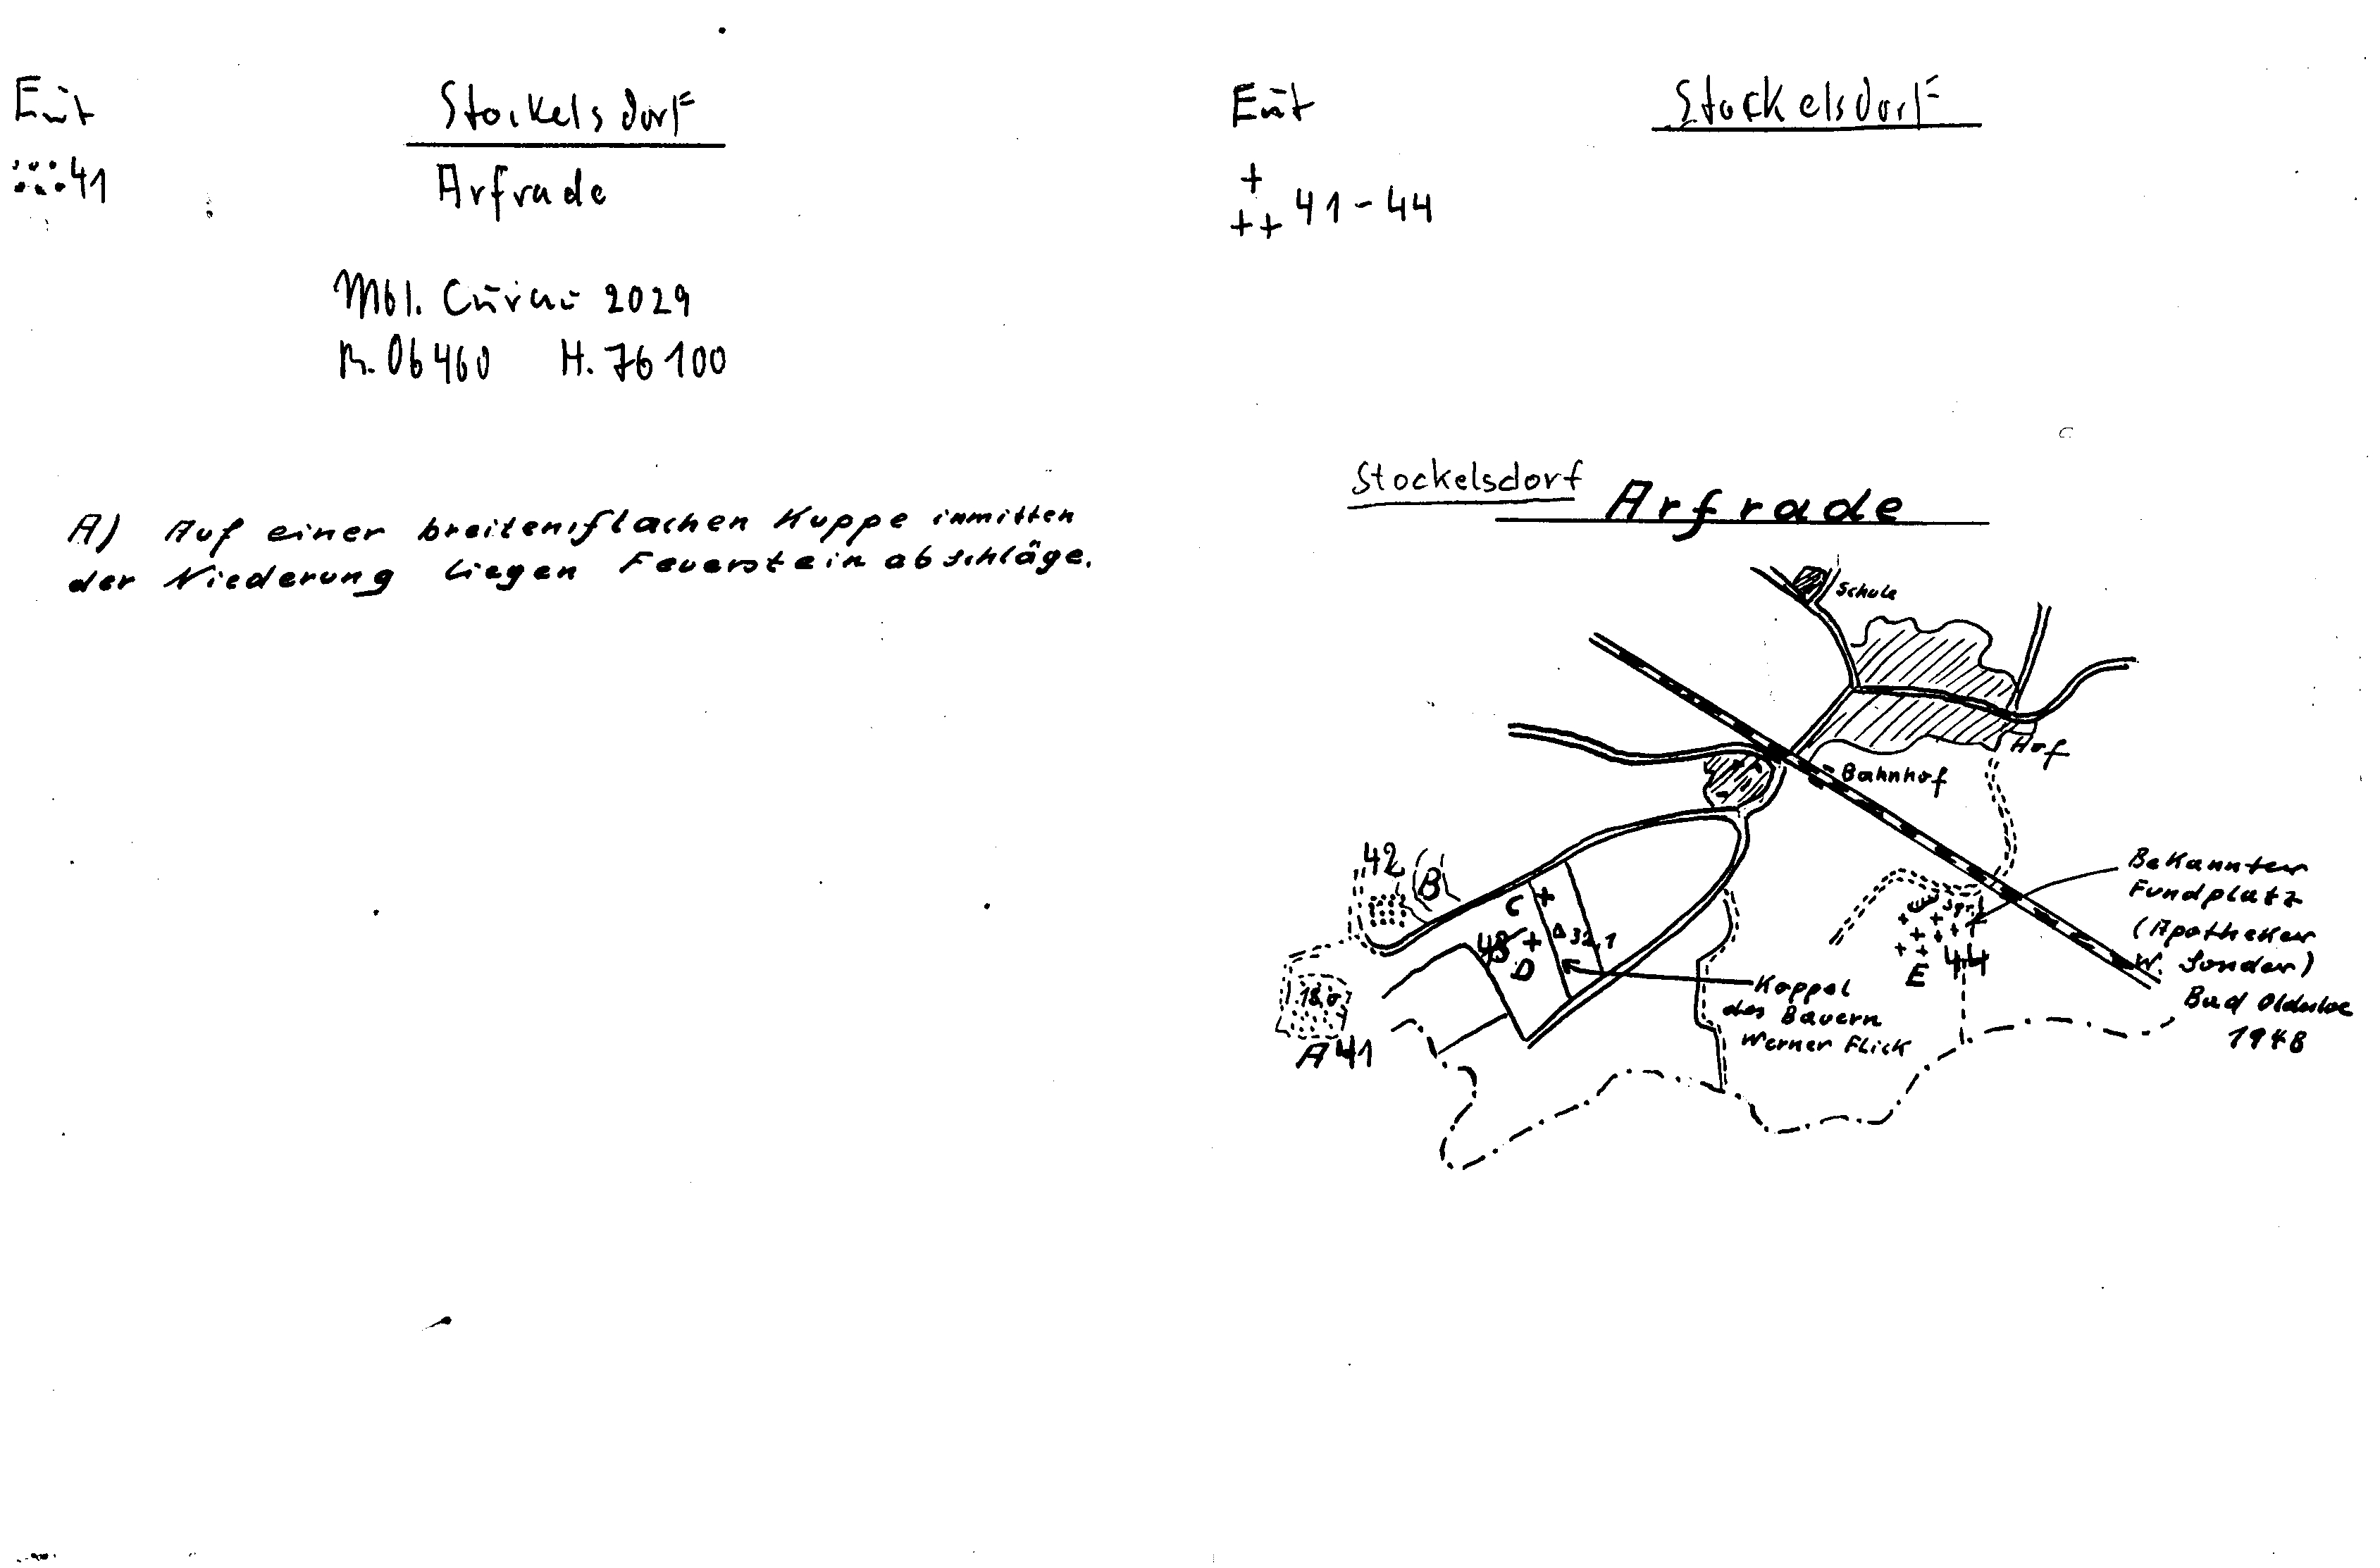 Eut
41
Stockelsdorf
Arfrade
Mbl. Curau 2029
R. 06460 H. 76100
A) Auf einer breiten, flachen Kuppe inmitten
der Niederung liegen Feuersteinabschläge.
Eut
+
++ 41-44
Stockelsdorf
Stockelsdorf Arfrade
Schule
Hof
Bahnhof
42 B
C +
Δ 32,1
43 +
D
18,0
A 41
Koppel
des Bauern
Werner Flick
Sgr.
E 44
Bekannter
Fundplatz
(Apotheker
W. Sonder)
Bad Oldesloe
1948